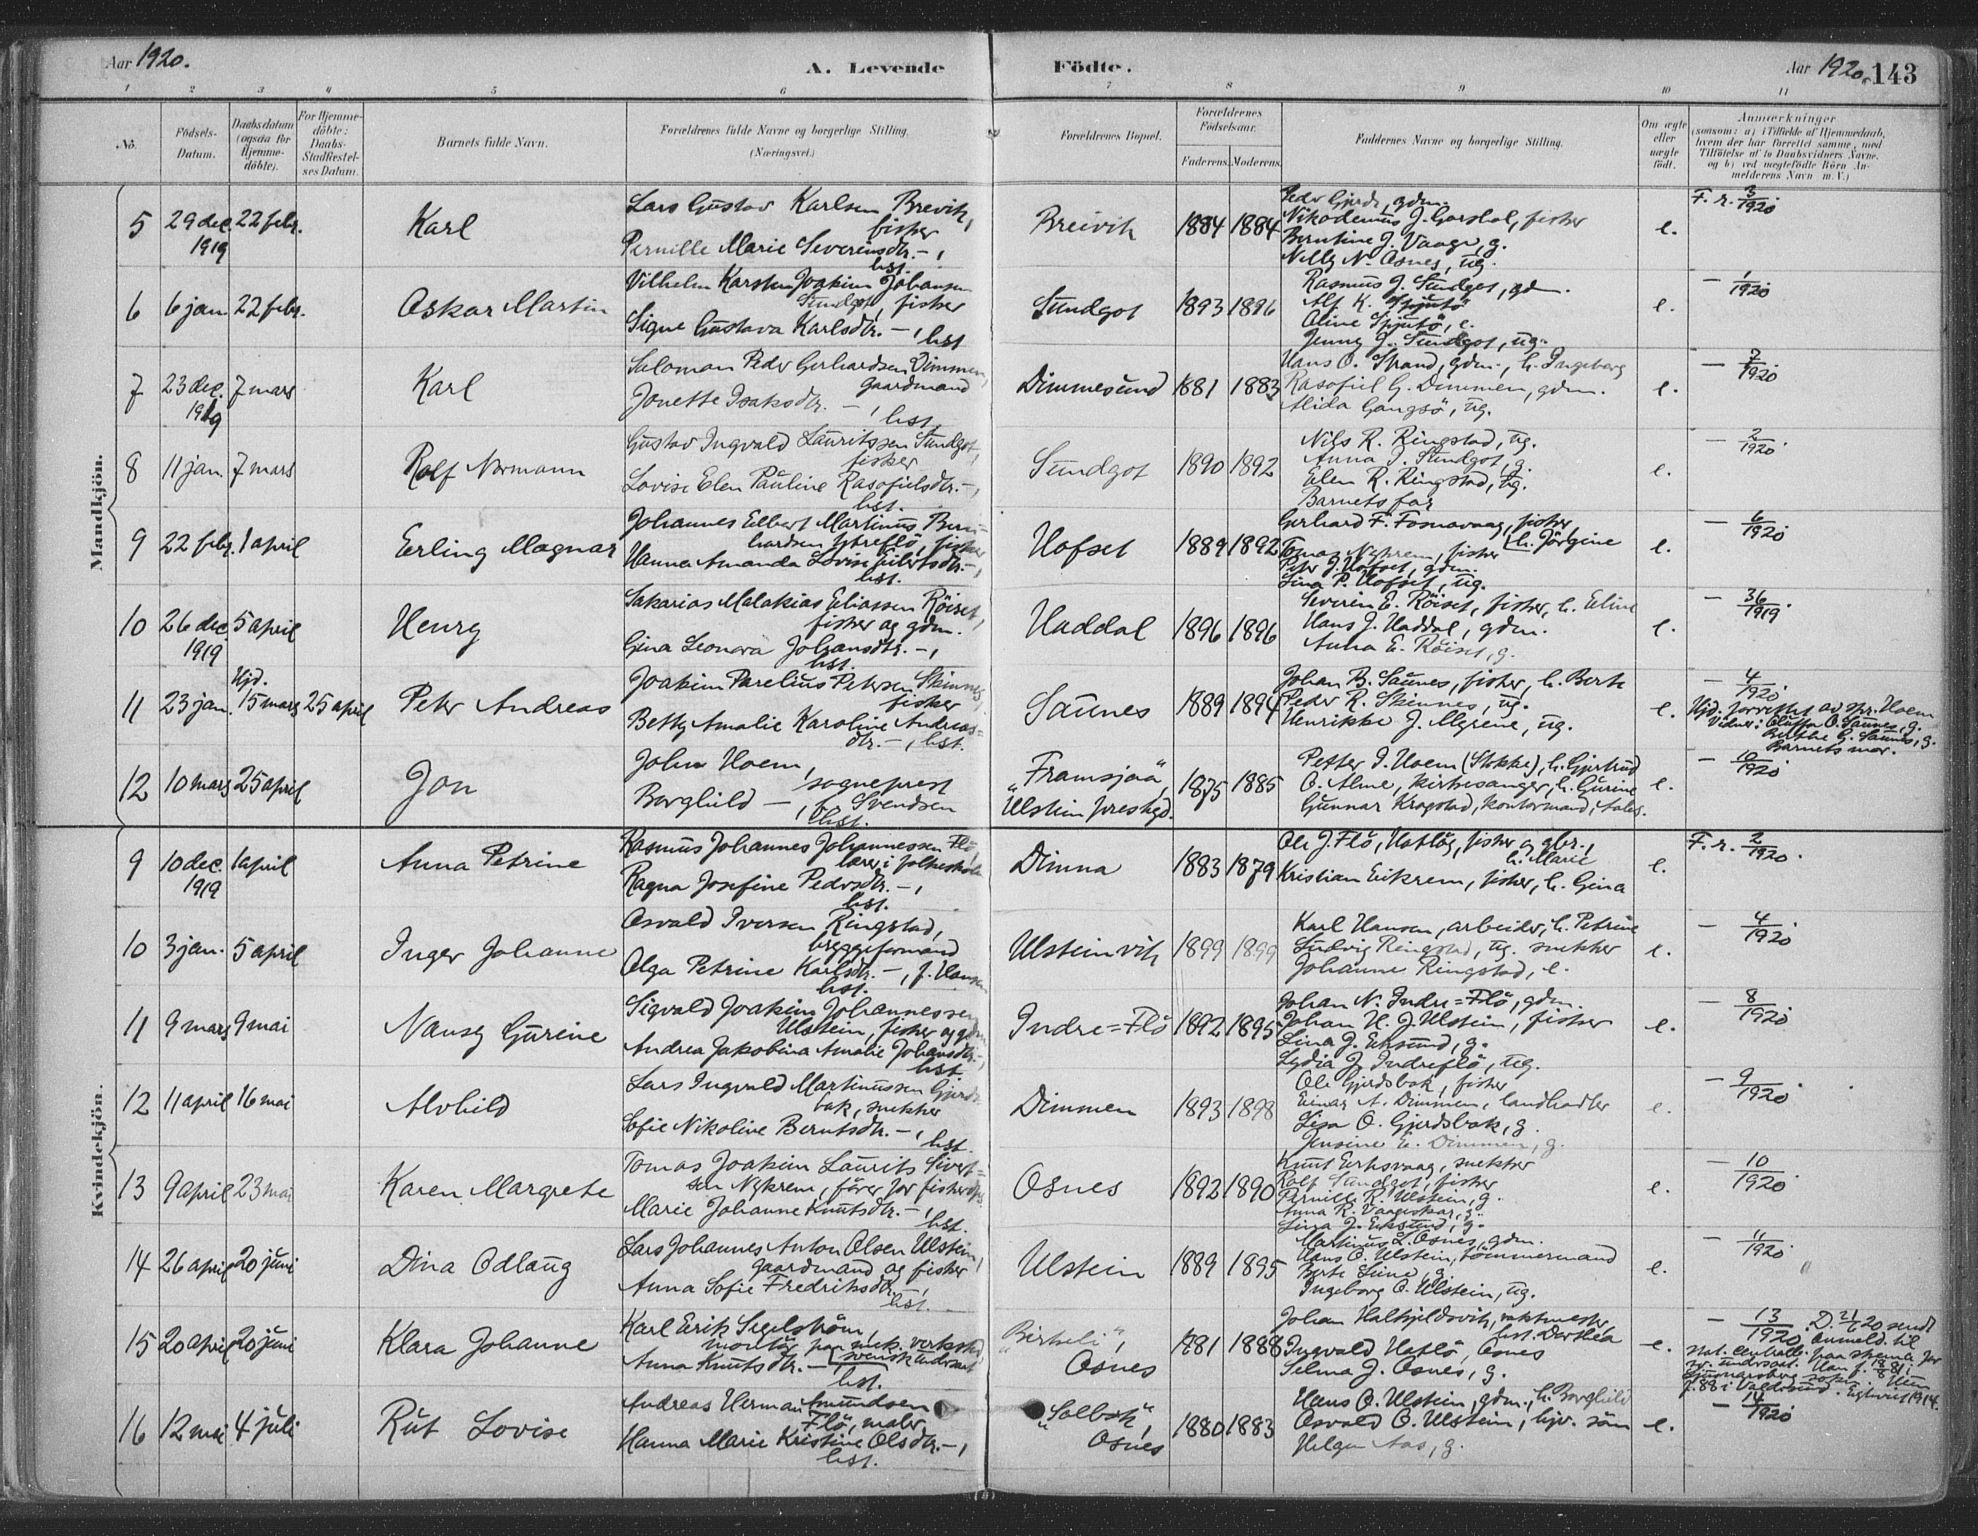 Aar 1920.
A. Levende Födte.
Aar 1920. 143
1 2 3 4 5 6 7 8 9 10 11
No.
Födsels-Datum.
Daabsdatum (ogsaa for Hjemme-döbte).
For Hjemme-döbte: Daabs-Stadfæstel-ses Datum.
Barnets fulde Navn.
Forældrenes fulde Navne og borgerlige Stilling. (Næringsvei.)
Forældrenes Bopæl.
Forældrenes Födselsaar.
Faderens. Moderens.
Faddernes Navne og borgerlige Stilling.
Om ægte eller uægte födt.
Anmærkninger
(saasom: a) i Tilfælde af Hjemmedaab, hvem der har forrettet samme, med Tilföielse af to Daabsvidners Navne, og b) ved uægtefödte Börn An-melderens Navn m. V.)
Mandkjön.
5 29 dec. 1919 22 febr. Karl
Lars Gustav Karlsen Brevik, fisker
Pernille Marie Severinsdtr. —, hst.
Breivik 1884 1884
Peder Gjerde, gdm.
Nikodemus J. Garshol, fisker
Berntine J. Vaage, g.
Nelly N. Osnes, ug.
e. F. r. 3/1920
6 6 jan. 22 febr. Oskar Martin
Vilhelm Karsten Joakim Johansen Sundgot, fisker
Signe Gustava Karlsdtr. —, hst
Sundgot 1893 1896
Rasmus J. Sundgot, gdm.
Alf K. Spjutö
Oline Spjutö, e.
Jenny J. Sundgot, ug.
e. — 1/1920
7 23 dec. 1919 7 mars Karl
Salomon Peder Gerhardsen Dimmen, gaardmand
Jonette Isaksdtr. —, hst.
Dimmesund 1881 1883
Hans O. Strand, gdm., h. Ingeborg
Rasofiel G. Dimmen, gdm.
Alida Gangsö, ug.
e. — 7/1920
8 11 jan. 7 mars Rolf Normann
Gustav Ingvald Lauritssen Sundgot, fisker
Lovise Elen Pauline Rasofielsdtr. —, hst.
Sundgot 1890 1892
Nils R. Ringstad, ug.
Anna J. Sundgot, g.
Elen R. Ringstad, ug.
Barnets far
e. — 2/1920
9 22 febr. 1 april Erling Magnar
Johannes Elbert Martinus Bern-hardsen Ytreflö, fisker
Hanna Amanda Lovise Eilertsdtr. —, hst.
Hofset 1889 1892
Gerhard F. Fosnavaag, fisker, h. Jörgine
Tomas Nykrem, fisker
Peter J. Hofset, gdm.
Lina P. Hofset, ug.
e. — 6/1920
10 26 dec. 1919 5 april Henry
Sakarias Malakias Eliassen Röiset, fisker og gdm.
Gina Leonora Johansdtr. —, hst.
Haddal 1896 1896
Severin E. Röiset, fisker, h. Eline
Hans J. Haddal, gdm.
Anna E. Röiset, g.
e. — 36/1919.
11 23 jan. Hjd. 15 mars 25 april Peter Andreas
Joakim Parelius Petersen Skinnes, fisker
Betty Amalie Karoline Andreas=dtr. —, hst.
Saunes 1889 1894
Johan B. Saunes, fisker, h. Berte
Peder R. Skinnes, ug.
Henrikke J. Myrene, ug.
e. — 4/1920
Hjd. forrettet av spr. Hoem
Vidner: Olufa O. Saunes, g.
Berthe G. Saunes, g.
Barnets mor.
12 10 mars 25 april Jon
John Hoem, sogneprest
Borghild —, f. Svendsen hst.
"Framsjaa", Ulstein prestegd. 1875 1885
Petter I. Hoem (Stokke), h. Gjertrud
O. Alme, kirkesanger, h. Gurine
Gunnar Krogstad, kontormand, Aales.
e. — 10/1920
Kvindekjön.
9 10 dec. 1919 1 april Anna Petrine
Rasmus Johannes Johannessen Flö, lærer i folkeskole
Ragna Josefine Pedersdtr. —, hst.
Dimna 1883 1879
Ole J. Flö, Hatlög, fisker og gbr., h. Marie
Kristian Eikrem, fisker, h. Gina
e. F. r. 2/1920.
10 3 jan. 5 april Inger Johanne
Osvald Iversen Ringstad, bryggeformand
Olga Petrine Karlsdtr. —, f. Hansen hst.
Ulsteinvik 1899 1899
Karl Hansen, arbeider, h. Petrine
Ludvig Ringstad, ug. snekker
Johanne Ringstad, e.
e. — 4/1920.
11 9 mars 9 mai Nansy Gurine
Sigvald Joakim Johannessen Ulstein, fisker og gdm.
Andrea Jakobina Amalie Johansdtr. —, hst
Indre=Flö 1892 1895
Johan N. Indre=Flö, gdm.
Johan H. J. Ulstein, fisker
Lina J. Eiksund, g.
Lydia J. Indreflö, ug.
e. — 8/1920.
12 11 april 16 mai Alvhild
Lars Ingvald Martinussen Gjerds-bak, snekker
Sofie Nikoline Berntsdtr. —, hst.
Dimmen 1893 1898
Ole Gjerdsbak, fisker
Einar A. Dimmen, landhandler
Lisa O. Gjerdsbak, g.
Jensine E. Dimmen, g.
e. — 9/1920.
13 9 april 23 mai Karen Margrete
Tomas Joakim Laurits Sivert=sen Nykrem, förer for fisker
Marie Johanne Knutsdtr. —, hst.
Osnes 1892 1890
Knut Eiksvaag, snekker
Rolf Sundgot, fisker
Pernille R. Ulstein, g.
Anna R. Vaageskar, g.
Lina J. Eiksund, g.
e. — 10/1920.
14 26 april 20 juni Dina Odlaug
Lars Johannes Anton Olsen Ulstein, gaardmand og fisker
Anna Sofie Fredriksdtr. —, hst.
Ulstein 1889 1895
Martinus L. Osnes, gdm.
Hans O. Ulstein, tömmermand
Berte Lione, g.
Ingeborg O. Ulstein, ug.
e. — 11/1920.
15 20 april 20 juni Klara Johanne
Karl Erik Segelström, montör paa mek. verksted
Anna Knutsdtr. — (svensk undersaat hst.
"Birkeli", Osnes 1881 1888
Johan Halkjeldsvik, vaktmester, hst. Dorthea
Ingvald Hatlö, Osnes
Selma J. Osnes, g.
e. — 13/1920. D. 21/6 20 sendt anmeld. til stat. centralb. paa skema for sv. undersaat. Han f. 18/8 81 i Ljusnarsberg sokn. Hun f. 88 i Valdersund. Egteviet 1914.
16 12 mai 4 juli Rut Lovise
Andreas Herman Amundsen Flö, maler
Hanna Marie Kristine Olsdtr. —, hst.
"Solbak", Osnes 1880 1883
Hans O. Ulstein, gdm., h. Borghild
Osvald O. Ulstein, hjv. sön
Helga Aas, g.
e. — 14/1920